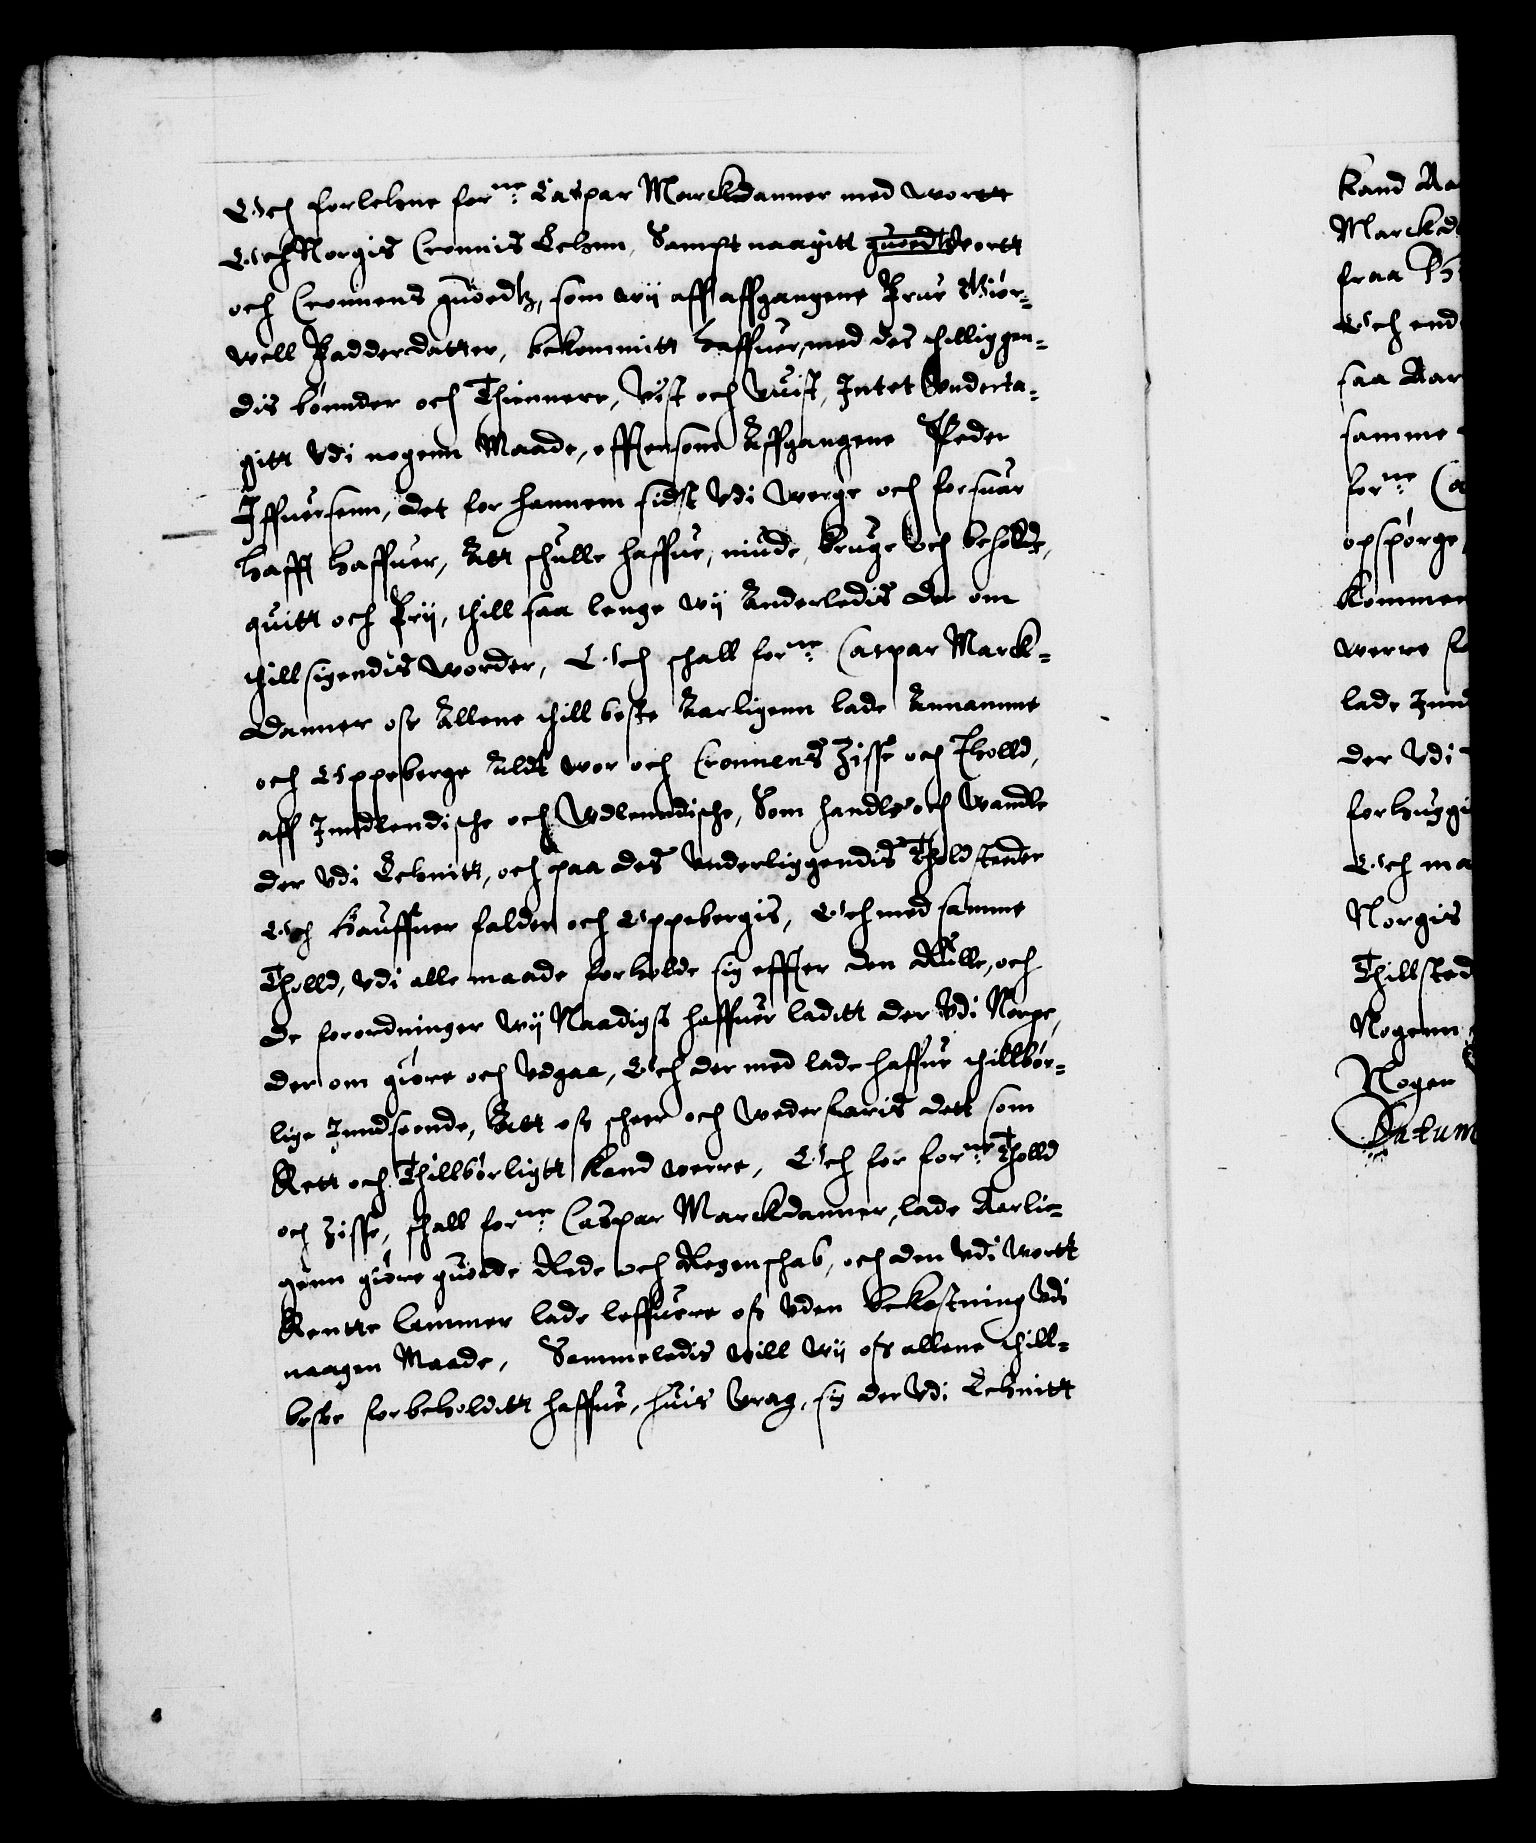 Och forlehne forne: Caspar Marckdanner med wortt
Och Norgis Cronnis Lehnn, Sampt naagitt guoedtz wortt
och Cronnens guoedtz, som wy aff affgangene Frue Giør-
well Fadderdatter, bekommitt haffuer, med des thilliggen-
dis bønnder och Thiennere, Vist och Uuist, Intet Vnderta-
gitt Vdi nogenn Maade, effttersom Affgangene Peder
Iffuersenn, det for hannem sidst Vdi Werge och forsuar
hafft haffuer, Att schulle haffue, niude, bruge och beholde,
quitt och Frij, thill saa lenge wij Anderledis der om
thill sigendis worder, Och schall forne: Caspar Marck-
danner oss Allene thill beste Aarligenn lade Annamme
och Oppeberge Aldt wor och Cronnens Zisse och Tholld,
aff Inndlendische och Wdlenndische, Som handle och wandle
der Vdi Lehnitt, och paa des Vnderliggendis Tholdsteder
Och Hauffner falder och Oppebergis, Och med samme
Tholld, Vdi alle maade forholde sig effter den Rulle, och
de forordninger wij Naadigst haffuer laditt der Vdi Norge,
der om giøre och Vdgaa, Och der med lade haffue thillbør-
lige Inndseende, Att oss scheer och wederfaris dett som
Rett och Thillbørligtt kand werre, Och for forne: Tholld
och Zisse, schall forne: Caspar Marckdanner, lade Aarli-
genn giøre guode Rede och Regenschab, och den Vdi wortt
Rentte Cammer lade leffuere oss Vden bekostning Vdi
naagen Maade, Sammeledis will wij oss allene thill-
beste forbeholditt haffue, huis Vrag, sig der Vdi Lehnitt
kand Aa
Marckd
fraa
Och end
saa Aar
samme
forne: Ca
opspørge
kommer
werre
lade Innd
der Vdi
forhuggi
Och ma
Norgis
Thillsted
Nogenn
Nogen
Datum